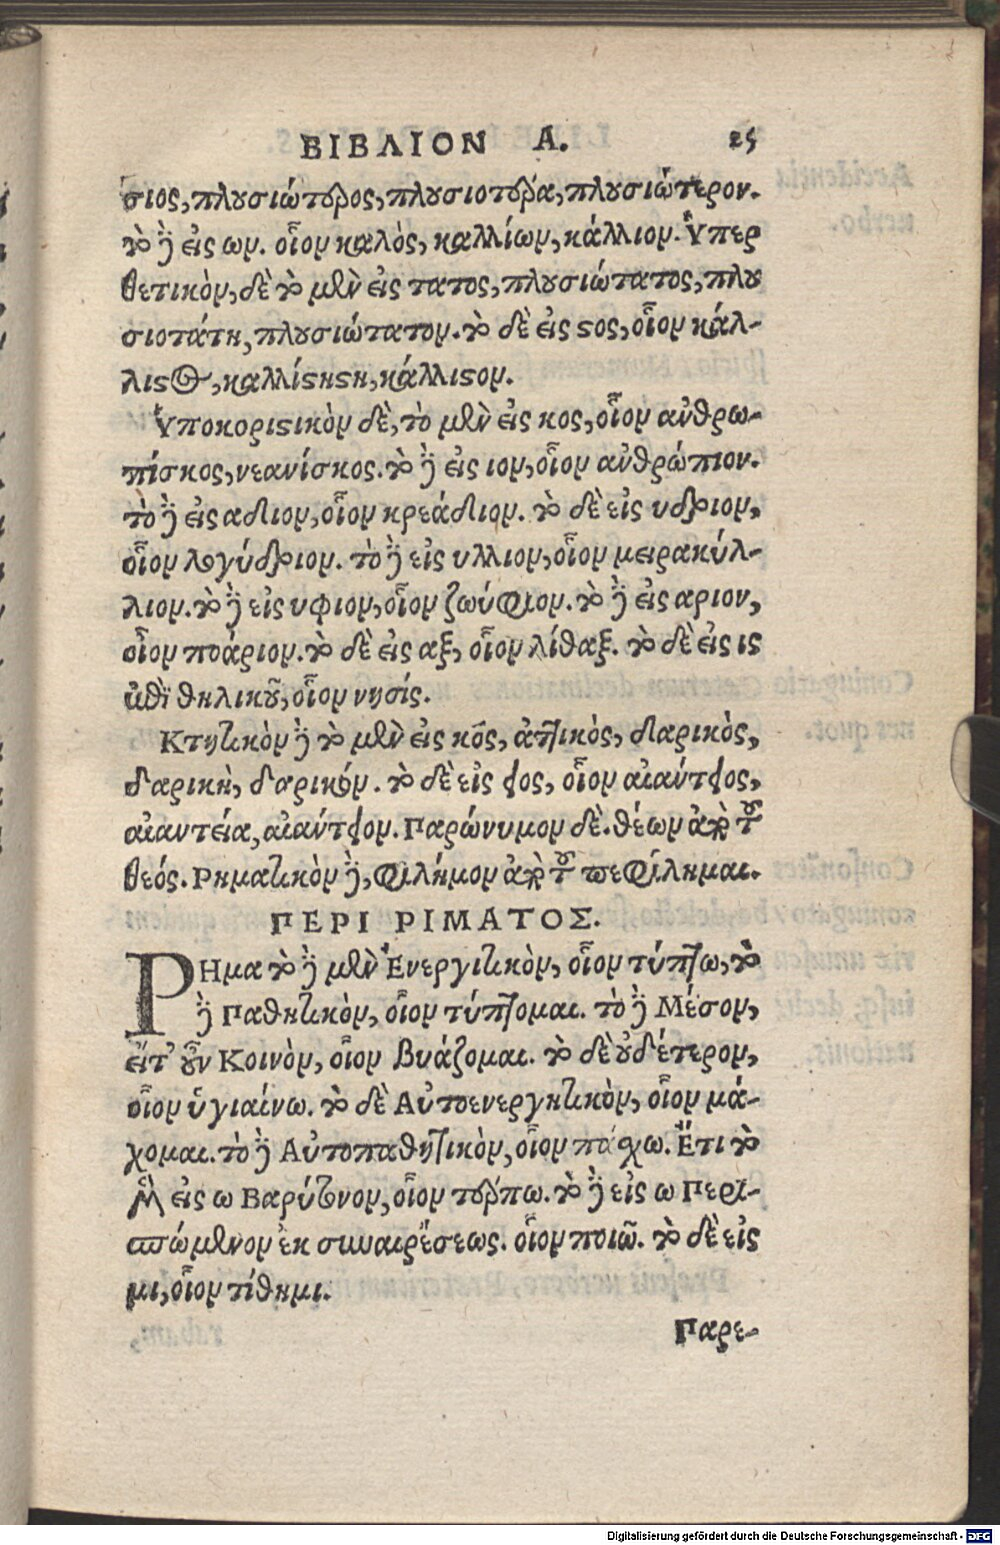 ΒΙΒΛΙΟΝ Α. 25
σιος, πλουσιώτερος, πλουσιοτέρα, πλουσιώτερον.
τὸ δὲ εἰς ων. οἷον καλὸς, καλλίων, κάλλιον. Ὑπερ
θετικὸν, δὲ τὸ μὲν εἰς τατος, πλουσιώτατος, πλου
σιοτάτη, πλουσιώτατον. τὸ δὲ εἰς ϛος, οἷον κάλ-
λιϛος, καλλίϛηϛη, κάλλιϛον.
Ὑποκοριϛικὸν δὲ, τὸ μὲν εἰς κος, οἷον ἀνθρω-
πίσκος, νεανίσκος. τὸ δὲ εἰς ιον, οἷον ἀνθρώπιον.
τὸ δὲ εἰς αδιον, οἷον κρεάδιον. τὸ δὲ εἰς υδριον,
οἷον λογύδριον. τὸ δὲ εἰς υλλιον, οἷον μειρακύλ-
λιον. τὸ δὲ εἰς υφιον, οἷον ζωύφιον. τὸ δὲ εἰς αριον,
οἷον ποάριον. τὸ δὲ εἰς αξ, οἷον λίθαξ. τὸ δὲ εἰς ις
ἀντὶ θηλικοῦ, οἷον νησίς.
Κτητικὸν δὲ τὸ μὲν εἰς κὸς, ἀττικὸς, δαρικὸς,
δαρικὴ, δαρικόν. τὸ δὲ εἰς ειος, οἷον αἰαντειος,
αἰαντεία, αἰάντειον. Παρώνυμον δὲ. θέων ἀπὸ τοῦ
θεός. Ρηματικὸν δὲ, φιλήμον ἀπὸ τοῦ πεφίλημαι.
ΠΕΡΙ ΡΙΜΑΤΟΣ.
ΡΗμα τὸ δὲ μὲν Ἐνεργιτικὸν, οἷον τύπτω, τὸ
δὲ Παθητικὸν, οἷον τύπτομαι. τὸ δὲ Μέσον,
εἴτ' οὖν Κοινὸν, οἷον βιάζομαι. τὸ δὲ οὐδέτερον,
οἷον ὑγιαίνω. τὸ δὲ Αὐτοενεργητικὸν, οἷον μά-
χομαι. τὸ δὲ Αὐτοπαθητικὸν, οἷον πάχω. Ἔτι τὸ
μὲν εἰς ω Βαρύτονον, οἷον τέρπω. τὸ δὲ εἰς ω Περι-
σπώμενον ἐκ συναιρέσεως. οἷον ποιῶ. τὸ δὲ εἰς
μι, οἷον τίθημι.
Παρε-
Digitalisierung gefördert durch die Deutsche Forschungsgemeinschaft - DFG